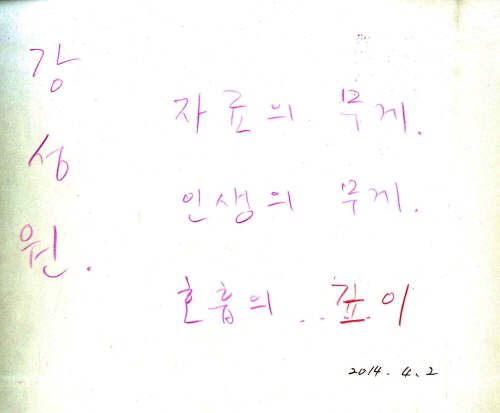 강성원.
자료의 무게.
인생의 무게.
호흡의 ... 깊이
2014. 4. 2